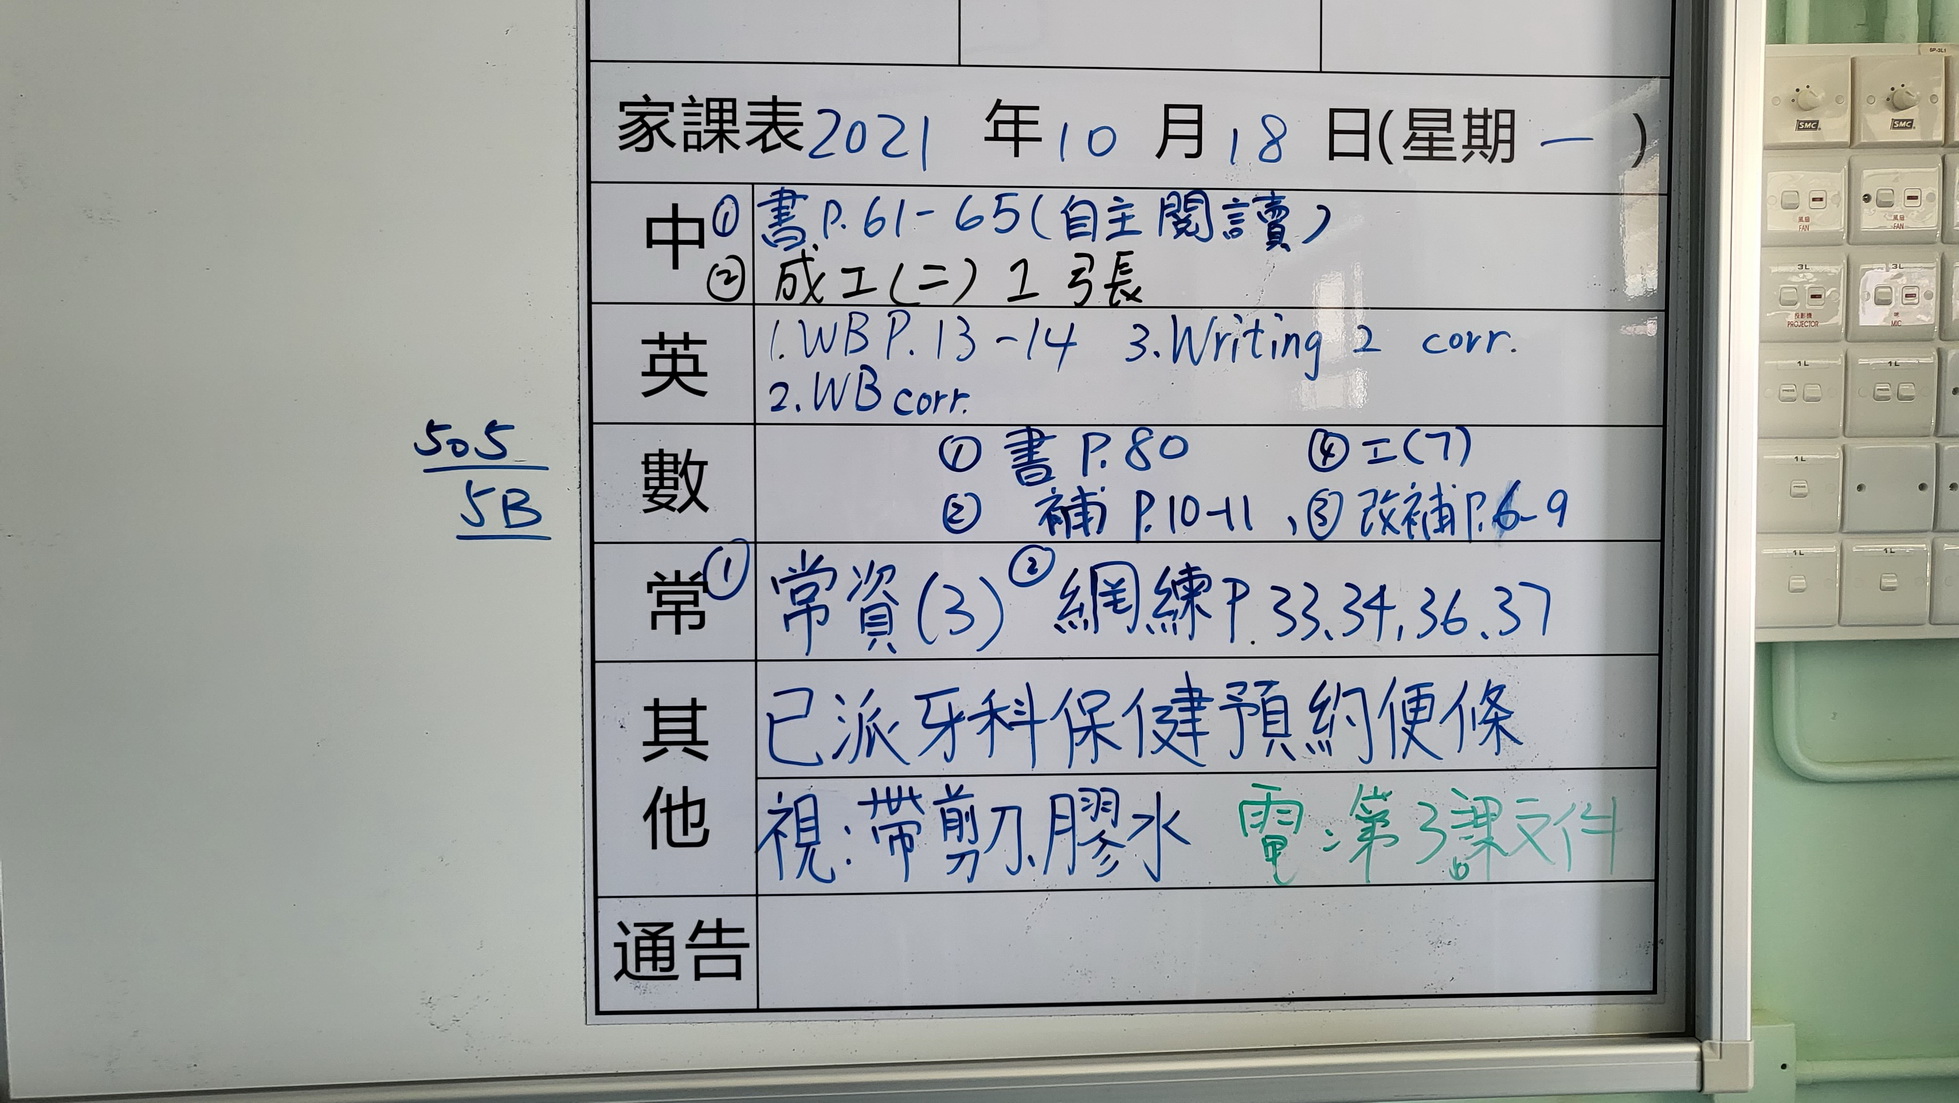 家課表2021 年10 月18 日(星期一)
中 ① 書P.61-65(自主閱讀)
② 成工(二) 1 弓長
英 1.WB P.13-14 3.Writing 2 corr.
2.WB corr.
505
5B
數 ① 書 P.80 ④工(7)
② 補 P.10-11、③改補P.6-9
常 ① 常資(3) ② 網練P.33、34、36、37
其他 已派牙科保健預約便條
視:帶剪刀、膠水 電:第3課文件
通告
SMC SMC
風扇 FAN
風扇 FAN
3L 3L
投影機 PROJECTOR
咪 MIC
1L 1L
1L
1L 1L